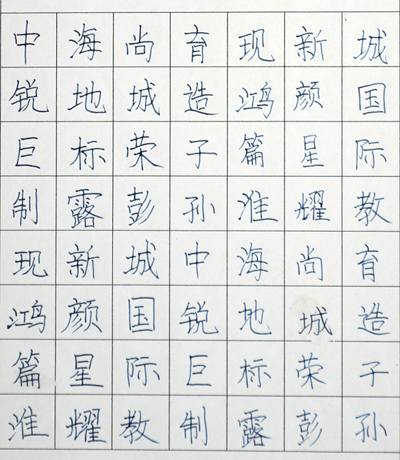 中海尚育现新城
锐地城造鸿颜国
巨标荣子篇星际
制露彭孙淮耀教
现新城中海尚育
鸿颜国锐地城造
篇星际巨标荣子
淮耀教制露彭孙